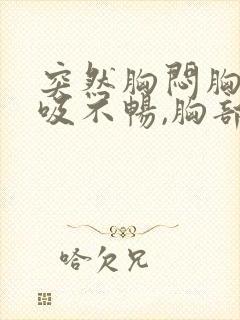 突然胸悶胸
吸不暢,胸部
哈欠兄